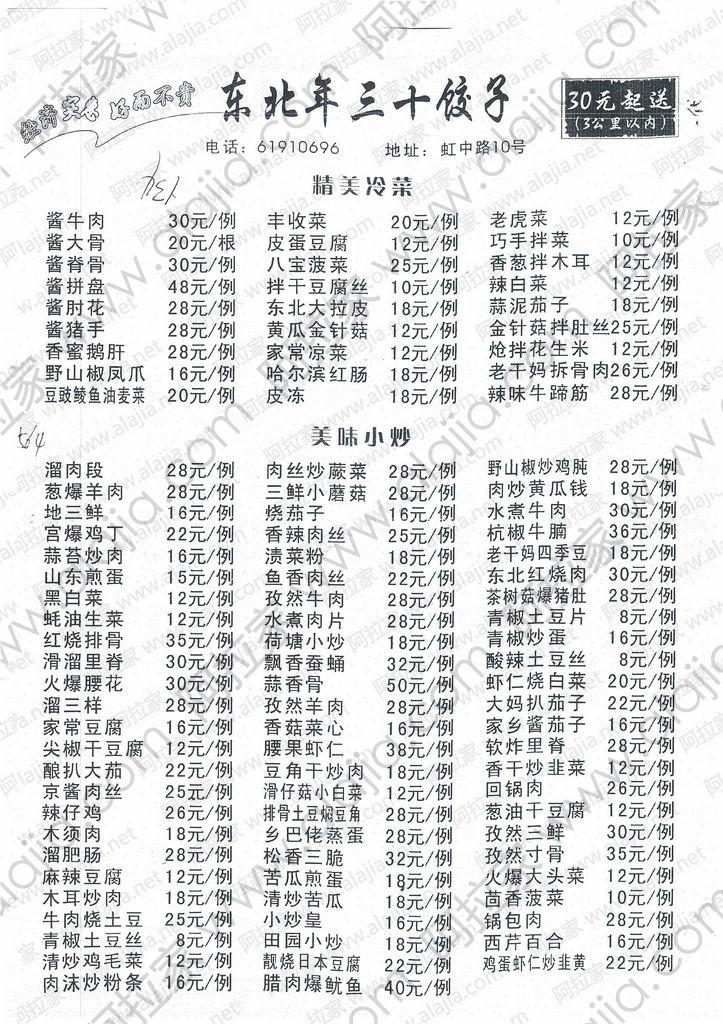 经济实惠 好而不贵
东北年三十饺子
30元起送
(3公里以内)
电话：61910696 地址：虹中路10号
精美冷菜
酱牛肉 30元/例 丰收菜 20元/例 老虎菜 12元/例
酱大骨 20元/根 皮蛋豆腐 12元/例 巧手拌菜 10元/例
酱脊骨 30元/例 八宝菠菜 25元/例 香葱拌木耳 12元/例
酱拼盘 48元/例 拌干豆腐丝 10元/例 辣白菜 12元/例
酱肘花 28元/例 东北大拉皮 18元/例 蒜泥茄子 18元/例
酱猪手 28元/例 黄瓜金针菇 12元/例 金针菇拌肚丝 25元/例
香蜜鹅肝 28元/例 家常凉菜 12元/例 炝拌花生米 12元/例
野山椒凤爪 16元/例 哈尔滨红肠 18元/例 老干妈拆骨肉 26元/例
豆豉鲮鱼油麦菜 20元/例 皮冻 18元/例 辣味牛蹄筋 28元/例
美味小炒
溜肉段 28元/例 肉丝炒蕨菜 28元/例 野山椒炒鸡肫 28元/例
葱爆羊肉 28元/例 三鲜小蘑菇 28元/例 肉炒黄瓜钱 18元/例
地三鲜 16元/例 烧茄子 16元/例 水煮牛肉 30元/例
宫爆鸡丁 22元/例 香辣肉丝 25元/例 杭椒牛腩 36元/例
蒜苔炒肉 16元/例 渍菜粉 18元/例 老干妈四季豆 18元/例
山东煎蛋 15元/例 鱼香肉丝 22元/例 东北红烧肉 30元/例
黑白菜 12元/例 孜然牛肉 28元/例 茶树菇爆猪肚 28元/例
蚝油生菜 12元/例 水煮肉片 28元/例 青椒土豆片 8元/例
红烧排骨 35元/例 荷塘小炒 18元/例 青椒炒蛋 16元/例
滑溜里脊 30元/例 飘香蚕蛹 32元/例 酸辣土豆丝 8元/例
火爆腰花 30元/例 蒜香骨 50元/例 虾仁烧白菜 20元/例
溜三样 28元/例 孜然羊肉 28元/例 大妈扒茄子 22元/例
家常豆腐 16元/例 香菇菜心 16元/例 家乡酱茄子 16元/例
尖椒干豆腐 12元/例 腰果虾仁 38元/例 软炸里脊 28元/例
酿扒大茄 22元/例 豆角干炒肉 18元/例 香干炒韭菜 12元/例
京酱肉丝 25元/例 滑仔菇小白菜 12元/例 回锅肉 26元/例
辣仔鸡 26元/例 排骨土豆焖豆角 28元/例 葱油干豆腐 12元/例
木须肉 18元/例 乡巴佬蒸蛋 28元/例 孜然三鲜 30元/例
溜肥肠 28元/例 松香三脆 32元/例 孜然寸骨 35元/例
麻辣豆腐 12元/例 苦瓜煎蛋 18元/例 火爆大头菜 12元/例
木耳炒肉 18元/例 清炒苦瓜 18元/例 茴香菠菜 10元/例
牛肉烧土豆 25元/例 小炒皇 16元/例 锅包肉 28元/例
青椒土豆丝 8元/例 田园小炒 18元/例 西芹百合 16元/例
清炒鸡毛菜 12元/例 靓烧日本豆腐 22元/例 鸡蛋虾仁炒韭黄 22元/例
肉沫炒粉条 16元/例 腊肉爆鱿鱼 40元/例
阿拉家 www.alajia.com
阿拉家 www.alajia.net